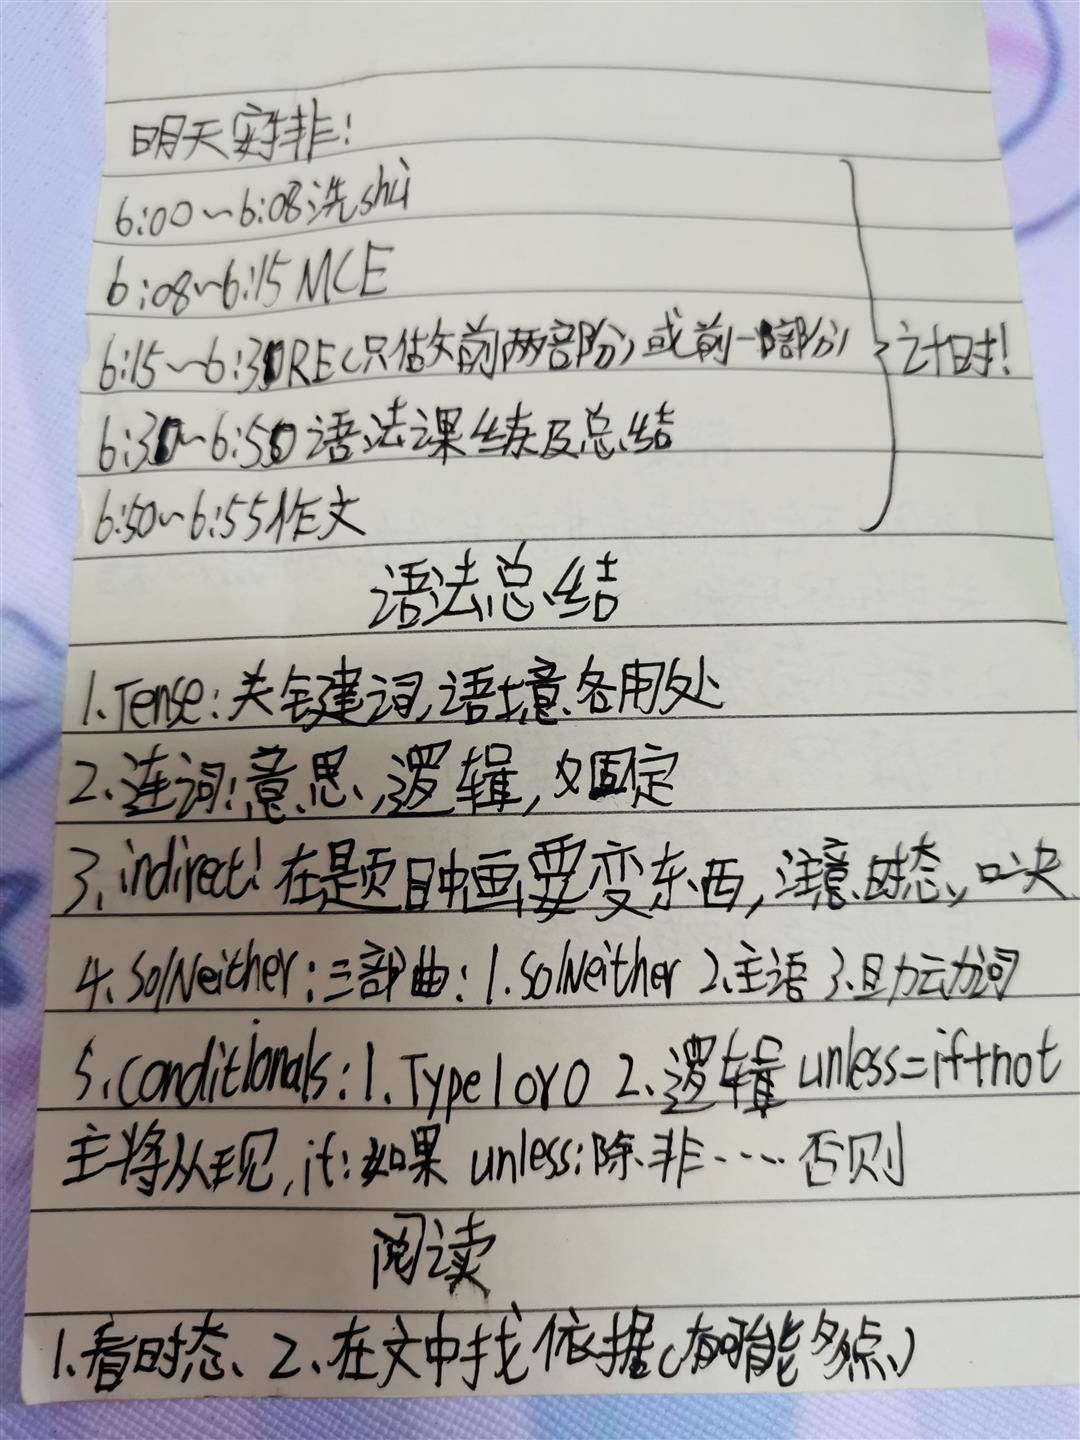 明天安排！
6:00~6:08洗shù
6:08~6:15 MCE
6:15~6:30RE(只做前两部分)或前一部分
计时！
6:30~6:50语法课练及总结
6:50~6:55作文
语法总结
1、Tense：关键词，语境、各用处
2、连词：意思，逻辑，固定
3、indirect！在题目中画要变东西，注意时态、口决
4、So/Neither：三部曲：1.So/Neither 2、主语 3、助动词
5、conditionals：1、Type 1 or 0 2、逻辑 unless=if+not
主将从现，if：如果 unless：除非……否则
阅读
1、看时态、2、在文中找依据(有可能多点)